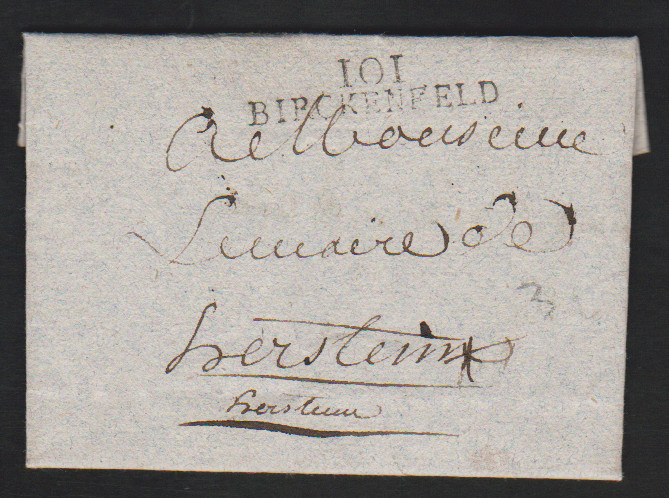 101
BIRCKENFELD
A Monsieur
Le maire de
herstein
herstein